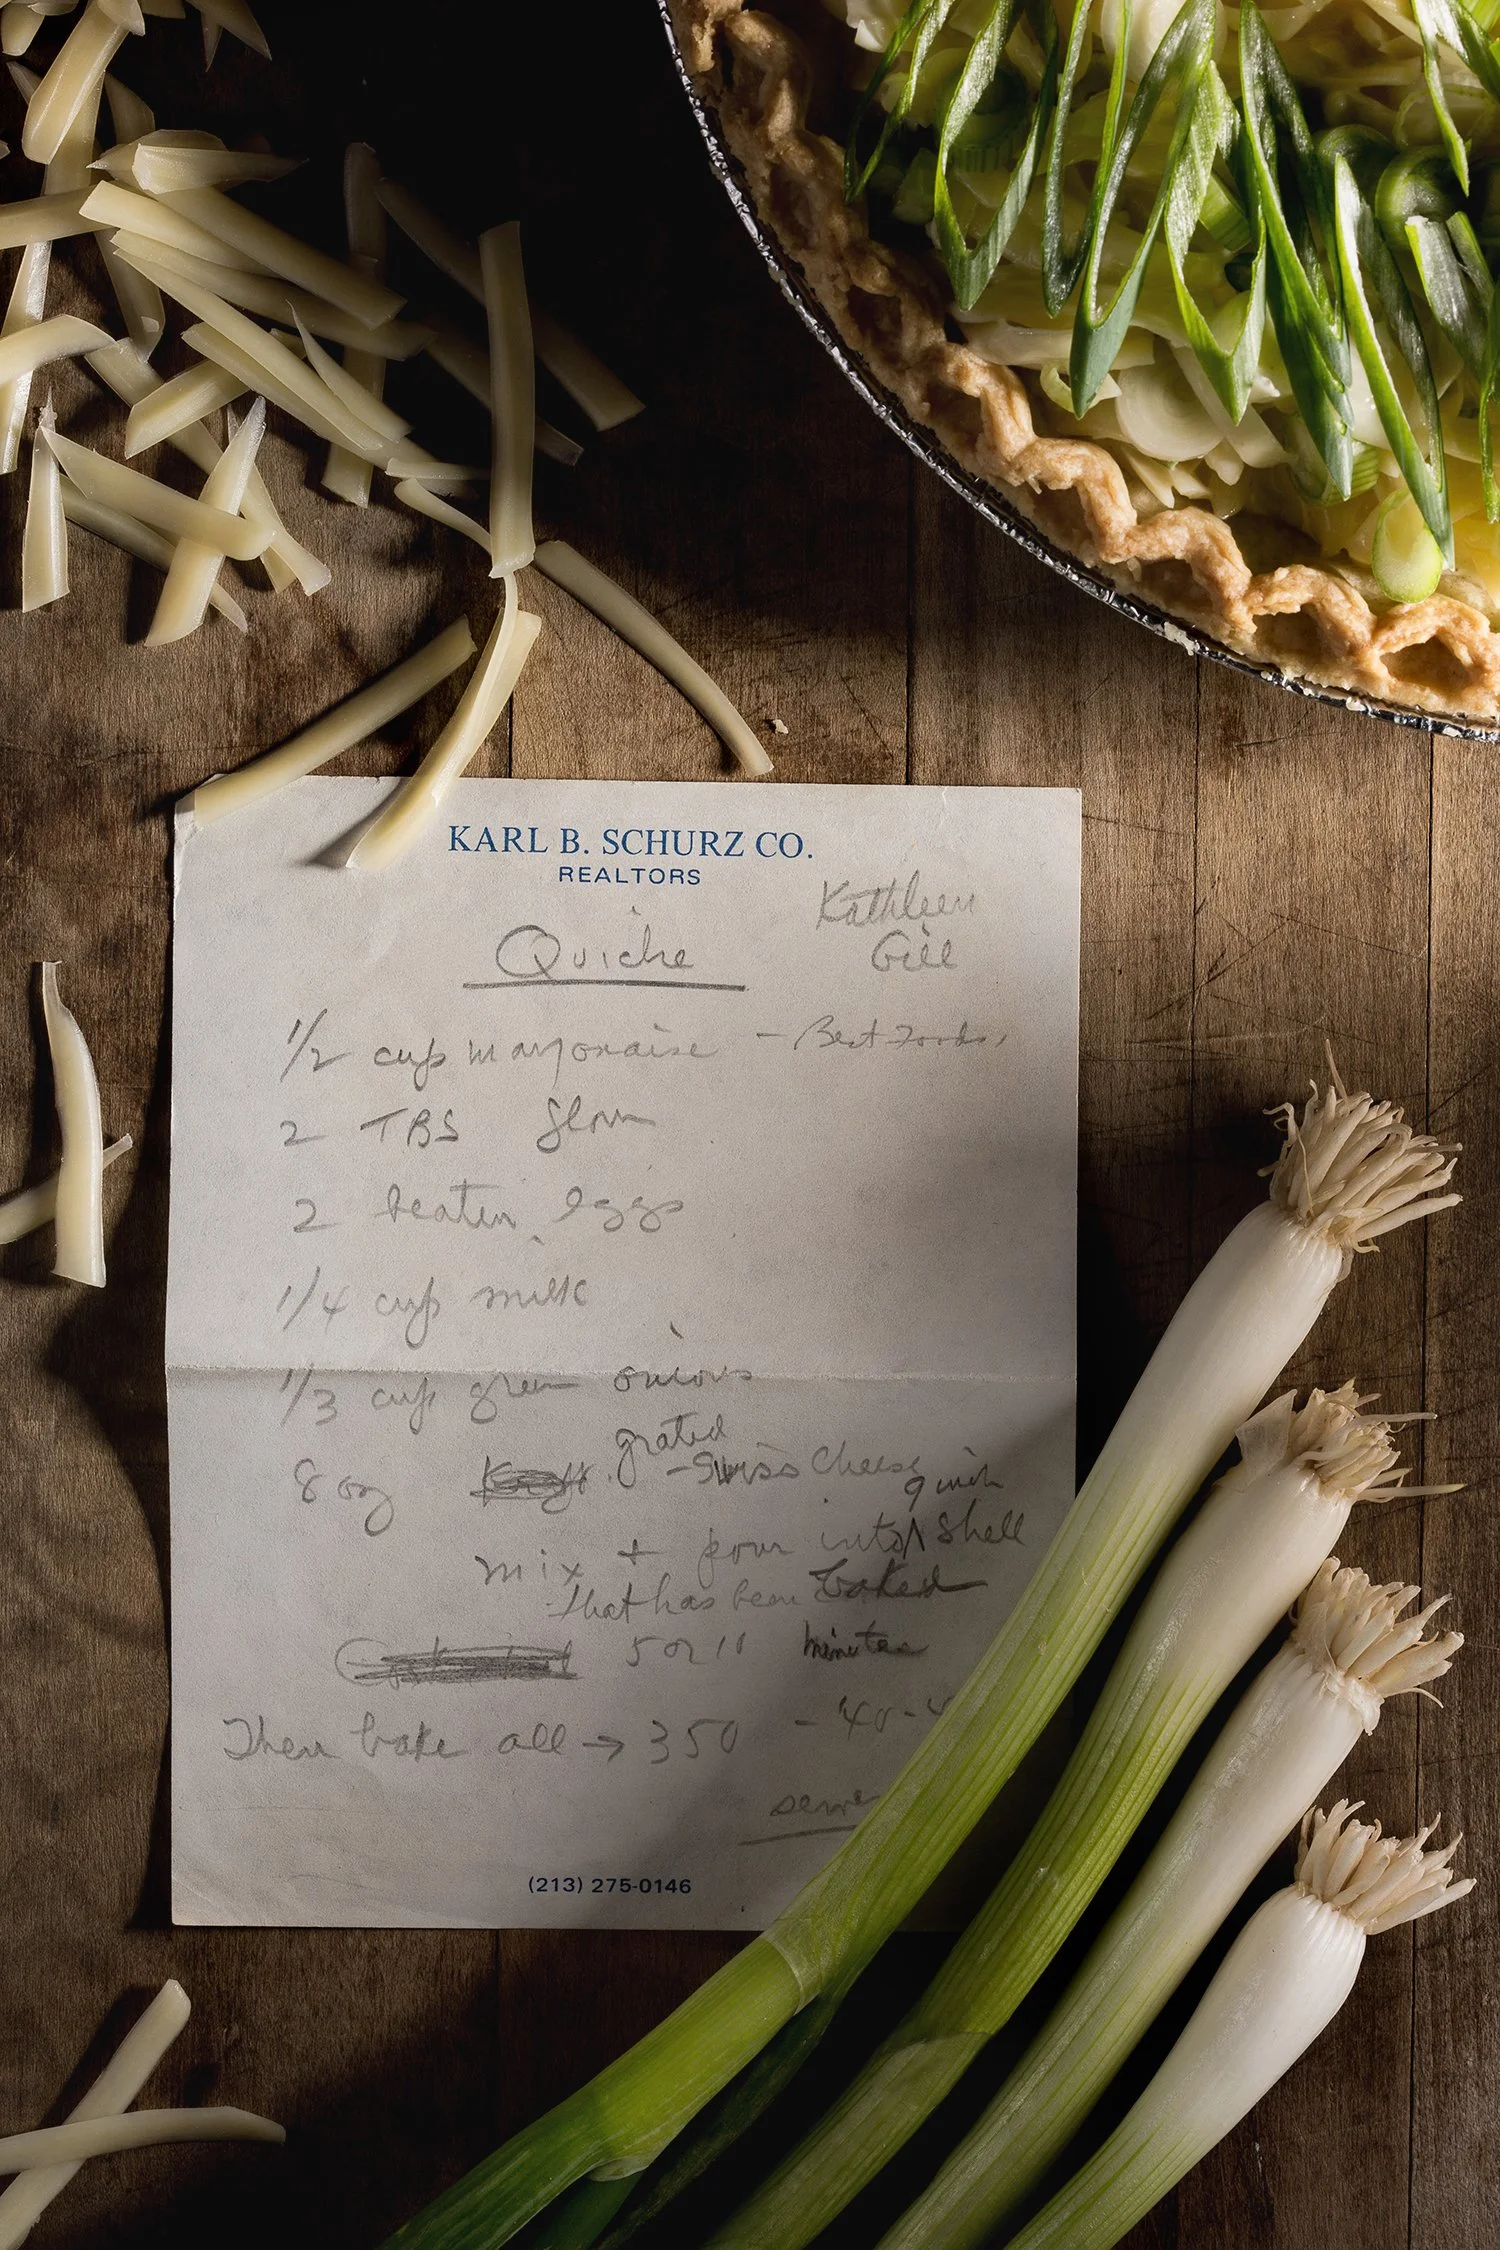 KARL B. SCHURZ CO.
REALTORS
Kathleen
Gill
Quiche
1/2 cup mayonaise - Best Foods,
2 TBS flour
2 beaten eggs
1/4 cup milk
1/3 cup green onions
grated
8 oz - Swiss Cheese
9 inch
mix + pour into ^ shell
that has been baked
5 or 10 minutes
Then bake all → 350 - 40-4
(213) 275-0146